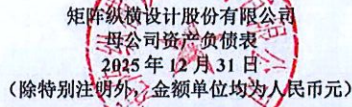 矩阵纵横设计股份有限公司
母公司资产负债表
2025年12月31日
（除特别注明外，金额单位均为人民币元）